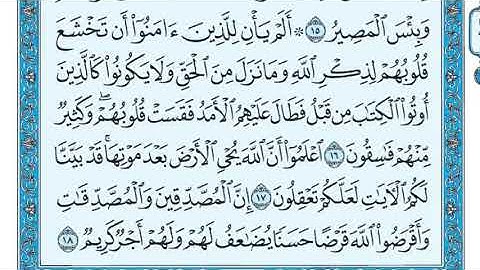 وَبِئْسَ ٱلْمَصِيرُ ١٥ ۞ أَلَمْ يَأْنِ لِلَّذِينَ ءَامَنُوٓا۟ أَن تَخْشَعَ
قُلُوبُهُمْ لِذِكْرِ ٱللَّهِ وَمَا نَزَلَ مِنَ ٱلْحَقِّ وَلَا يَكُونُوا۟ كَٱلَّذِينَ
أُوتُوا۟ ٱلْكِتَٰبَ مِن قَبْلُ فَطَالَ عَلَيْهِمُ ٱلْأَمَدُ فَقَسَتْ قُلُوبُهُمْ ۖ وَكَثِيرٌ
مِّنْهُمْ فَٰسِقُونَ ١٦ ٱعْلَمُوٓا۟ أَنَّ ٱللَّهَ يُحْىِ ٱلْأَرْضَ بَعْدَ مَوْتِهَا ۚ قَدْ بَيَّنَّا
لَكُمُ ٱلْءَايَٰتِ لَعَلَّكُمْ تَعْقِلُونَ ١٧ إِنَّ ٱلْمُصَّدِّقِينَ وَٱلْمُصَّدِّقَٰتِ
وَأَقْرَضُوا۟ ٱللَّهَ قَرْضًا حَسَنًا يُضَٰعَفُ لَهُمْ وَلَهُمْ أَجْرٌ كَرِيمٌ ١٨